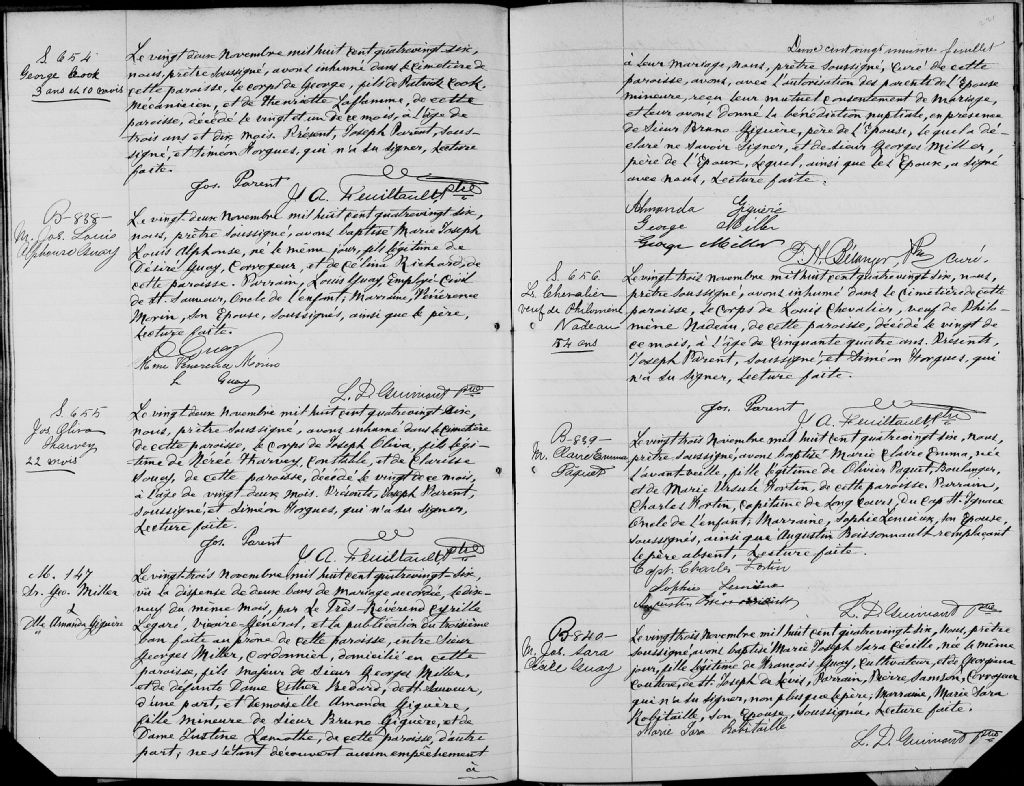 S 654
George Cook
3 ans et 10 mois
Le vingt deux Novembre mil huit cent quatrevingt six,
nous, prêtre soussigné, avons inhumé dans le Cimetière de
cette paroisse, le corps de George, fils de Patrick Cook,
Mécanicien, et de Henriette Laflamme, de cette
paroisse, décédé le vingt et un de ce mois, à l'âge de
trois ans et dix mois. Présent, Joseph Parent, sous-
signé, et Siméon Horgues, qui n'a su signer, Lecture
faite.
Jos. Parent
J A. Feuiltault, Ptre
B-838-
M. Jos. Louis
Alphonse Guay
Le vingt deux Novembre mil huit cent quatrevingt six,
nous, prêtre, soussigné, avons baptisé Marie Joseph
Louis Alphonse, né le même jour, fils légitime de
Désiré Guay, Corroyeur, et de Célina Richard, de
cette paroisse. Parrain, Louis Guay Employé Civil
de St. Sauveur, Oncle de l'enfant; Marraine, Vénérence
Morin, son Epouse, soussignés, ainsi que le père,
Lecture faite.
D Guay
Mme Venerence Morin
L Guay
L. D. Guimont Ptre
S. 655
Jos Oliva
Harvey
22 mois
Le vingt deux Novembre mil huit cent quatrevingt six,
nous, prêtre soussigné, avons inhumé dans le Cimetière
de cette paroisse, le corps de Joseph Oliva, fils légi-
time de Nérée Harvey, Constable, et de Clarisse
Soucy, de cette paroisse, décédé le vingt de ce mois,
à l'âge de vingt deux mois. Présents, Joseph Parent,
soussigné, et Siméon Horgues, qui n'a su signer,
Lecture faite.
Jos. Parent
J A. Feuiltault, Ptre
M. 147
Sr. Geo. Miller
&
Dlle Amanda Giguère
Le vingt trois Novembre mil huit cent quatrevingt six,
vu la dispense de deux bans de mariage accordée, le dix-
neuf du même mois, par le Très-Révérend Cyrille
Légaré, vicaire-Général, et la publication du troisième
ban faite au prône de cette paroisse, entre Sieur
Georges Miller, Cordonnier, domicilié en cette
paroisse, fils majeur de Sieur Georges Miller,
et de défunte Dame Esther Bédard, de St. Sauveur,
d'une part, et Demoiselle Amanda Giguère,
fille mineure de Sieur Bruno Giguère, et de
Dame Justine Lamothe, de cette paroisse, d'autre
part, ne s'étant découvert aucun empêchement
à
221
Deux cent vingt unième feuillet
à leur mariage, nous, prêtre soussigné, Curé de cette
paroisse, avons, avec l'autorisation des parents de l'Epouse
mineure, reçu leur mutuel consentement de Mariage,
et leur avons donné la bénédiction nuptiale, en présence
de Sieur Bruno Giguère, père de l'Epouse, lequel a dé-
claré ne savoir signer, et de Sieur Georges Miller,
père de l'Epoux, lequel, ainsi que les Epoux, a signé
avec nous, Lecture faite.
Almanda Giguère
George Miller
George Miller
F. H. Bélanger Ptre curé.
S 656.
Ls. Chevalier
veuf de Philomène
Nadeau
54 ans
Le vingt trois novembre mil huit cent quatrevingt six, nous,
prêtre soussigné, avons inhumé dans le Cimetière de cette
paroisse, le corps de Louis Chevalier, veuf de Philo-
mène Nadeau, de cette paroisse, décédé le vingt de
ce mois, à l'âge de cinquante quatre ans. Présents,
Joseph Parent, soussigné et Siméon Horgues, qui
n'a su signer, Lecture faite.
Jos. Parent
J A. Feuiltault, Ptre
B-839-
M. Claire Emma
Paquet
Le vingt trois Novembre mil huit cent quatrevingt six, nous,
prêtre soussigné, avons baptisé Marie Claire Emma, née
l'avant veille, fille légitime de Olivier Paquet, Boulanger,
et de Marie Ursule Fortin, de cette paroisse. Parrain,
Charles Fortin, Capitaine de Long Cours, du Cap St. Ignace
Oncle de l'enfant; Marraine, Sophie Lemieux, son Epouse,
soussignés, ainsi que Augustin Boissonnault remplaçant
le père absent. Lecture faite.
Capt. Charles Fortin
Sophie Lemieux
Augustin Boissonnault
L. D. Guimont Ptre
B-840-
M. Jos. Sara
Cécile Guay
Le vingt trois Novembre mil huit cent quatrevingt six, Nous, prêtre
soussigné, avons baptisé Marie Joseph Sara Cécile, née le même
jour, fille légitime de François Guay, Cultivateur, et de Georgina
Couture, de St. Joseph de Lévis, Parrain, Pierre Samson, Corroyeur
qui n'a su signer, non plus que le père; Marraine, Marie Sara
Robitaille, son Epouse, soussignée, Lecture faite.
Marie Sara Robitaille
L. D. Guimont Ptre